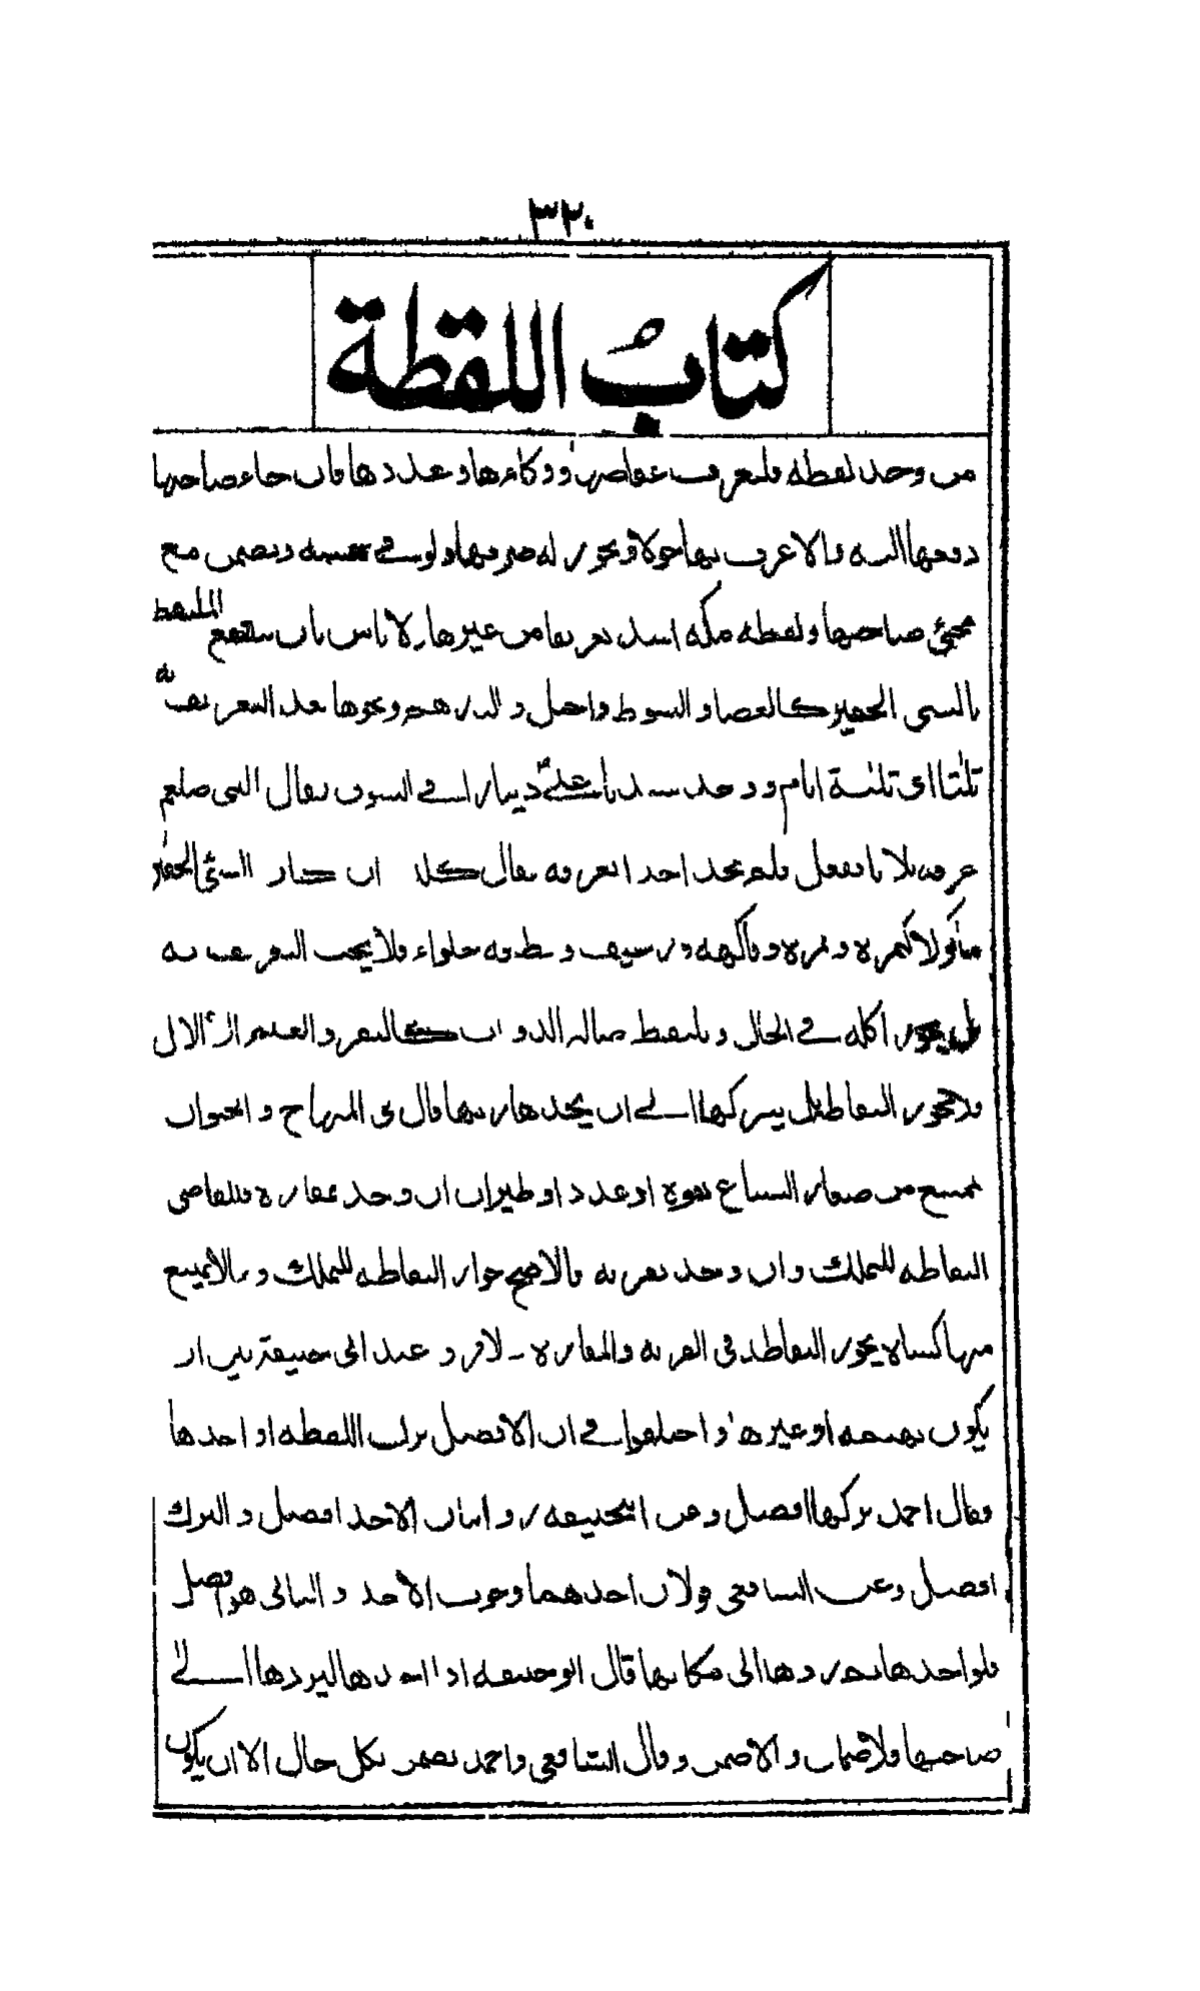 ٣٢٠
كتاب اللقطة
من وجد لقطة فليعرف عفاصها ووكاءها وعددها فان جاء صاحبها
دفعها اليه والا عرف بها حولا ويجوز له صرفها ولو في نفسه ويضمن مع
مجيئ صاحبها ولقطة مكة اشد تعريفا من غيرها ولا باس بان ينتفع الملتقط
بالشيء الحقير كالعصا والسوط واحبل والدرهم ونحوها بعد التعريف به
ثلثا اى ثلثة ايام ووجد سيدنا علي دينارا في السوق فقال النبى صلعم
عرفه ثلاثا ففعل فلم يجد احدا يعرفه فقال كله ان كان الشئ الحقير
ماكولا كتمرة وفاكهة وزر حلواء فلا يجب التعريف به
بل يجوز اكله في الحال ويلتقط ضالة الدواب كالبقر والغنم الا الابل
فلا يجوز التقاطها بل يتركها الى ان يجدها ربها قال في المنهاج والحيوان
يمتنع من صغار السباع بقوة او عدو او طيران ان وجد بمفازة فللقاضى
التقاطه للتملك وان وجد بقرية فالاصح جواز التقاطه للتملك وما لا يمتنع
منها كشاة يجوز التقاطه فى القرية والمفازة لا فرق وعند ابى حنيفة بين ان
يكون بهيمة او غيرها واختلفوا في ان الافضل ترك اللقطة او اخذها
فقال احمد تركها افضل وعن ابيحنيفة روايتان الاخذ افضل والترك
افضل وعن الشافعى قولان احدهما وجوب الاخذ والثانى هو افضل
فلو اخذها ثم ردها الى مكانها قال ابو حنيفة اذا اخذها ليردها الى
صاحبها فلا ضمان والا ضمن وقال الشافعى واحمد يضمن بكل حال الا ان يكون